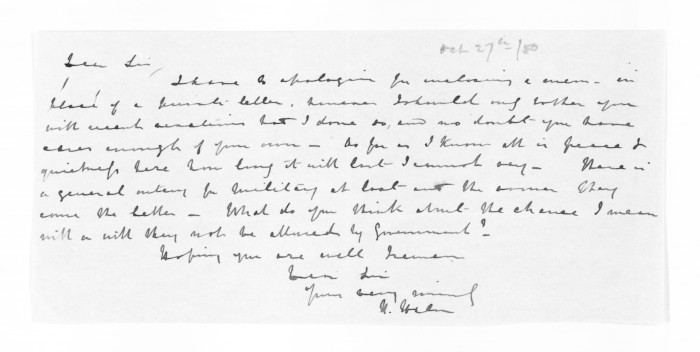 Oct 27th/80
Dear Sir,
I have to apologise for enclosing a memo - in
place of a private letter, however I should only bother you
with such had I done so, and no doubt you have
cares enough of your own - As far as I know all is peace &
quietness here how long it will last I cannot say - There is
a general outcry for Military at last and the sooner they
come the better - What do you think about the chance I mean
will or will they not be allowed by Government? -
Hoping you are well I remain
Dear Sir
Yours very